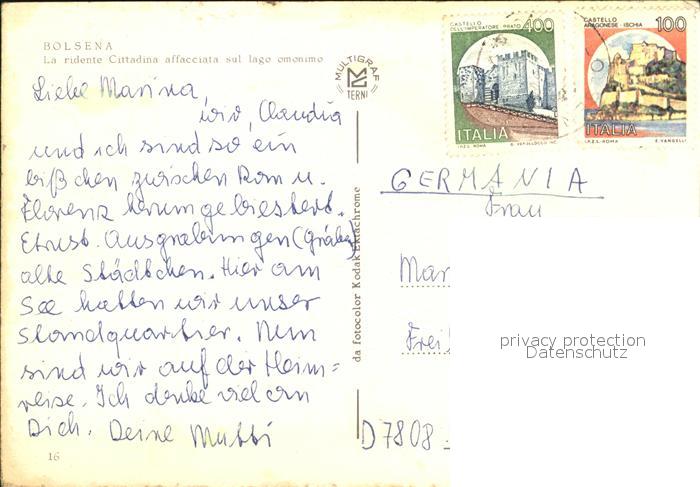 BOLSENA
La ridente Cittadina affacciata sul lago omonimo
Liebe Marina,
wir, Claudia
und ich sind so ein
bißchen zwischen Rom u.
Florenz herumgebiestert.
Etrusk. Ausgrabungen (Gräber)
alte Städtchen. Hier am
See hatten wir unser
Standquartier. Nun
sind wir auf der Heim=
reise. Ich denke viel an
Dich. Deine Mutti
16
MULTIGRAF
TERNI
da fotocolor Kodak Ektachrome
CASTELLO
DELL'IMPERATORE - PRATO 400
ITALIA
I.P.Z.S. ROMA
CASTELLO
ARAGONESE - ISCHIA 100
ITALIA
I.P.Z.S. - ROMA E. VANGELLI
GERMANIA
Frau
Mar
Frei
privacy protection
Datenschutz
D7808